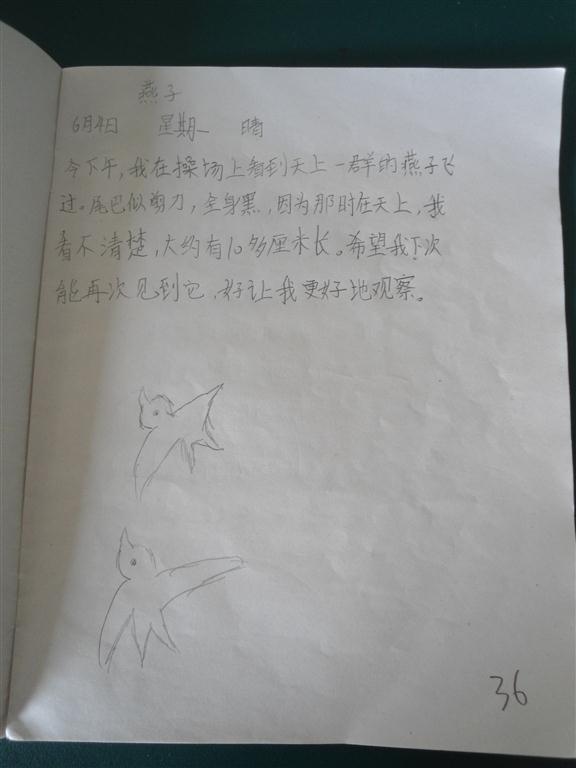 燕子
6月4日 星期一 晴
今下午,我在操场上看到天上一群的燕子飞
过。尾巴似剪刀,全身黑,因为那时在天上,我
看不清楚,大约有10多厘米长。希望我下次
能再次见到它,好让我更好地观察。
36